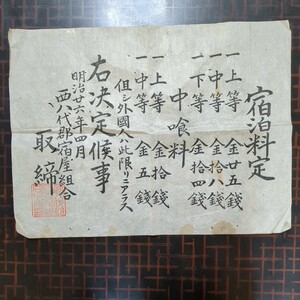 宿泊料定
一上等 金廿五錢
一中等 金拾八錢
一下等 金拾四錢
中喰料
一上等 金拾錢
一中等 金五錢
但シ外國人ハ此限リニアラス
右決定候事
明治廿六年四月
西八代郡宿屋組合
取締